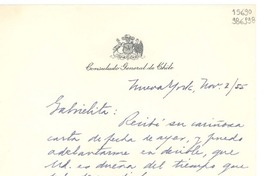 15690
Consulado General de Chile
Nueva York, Nov. 2/55
Gabrielita:
Recibí su cariñosa
carta de fecha de ayer, y puedo
adelantarme en decirle, que
Ud. es dueña del tiempo que